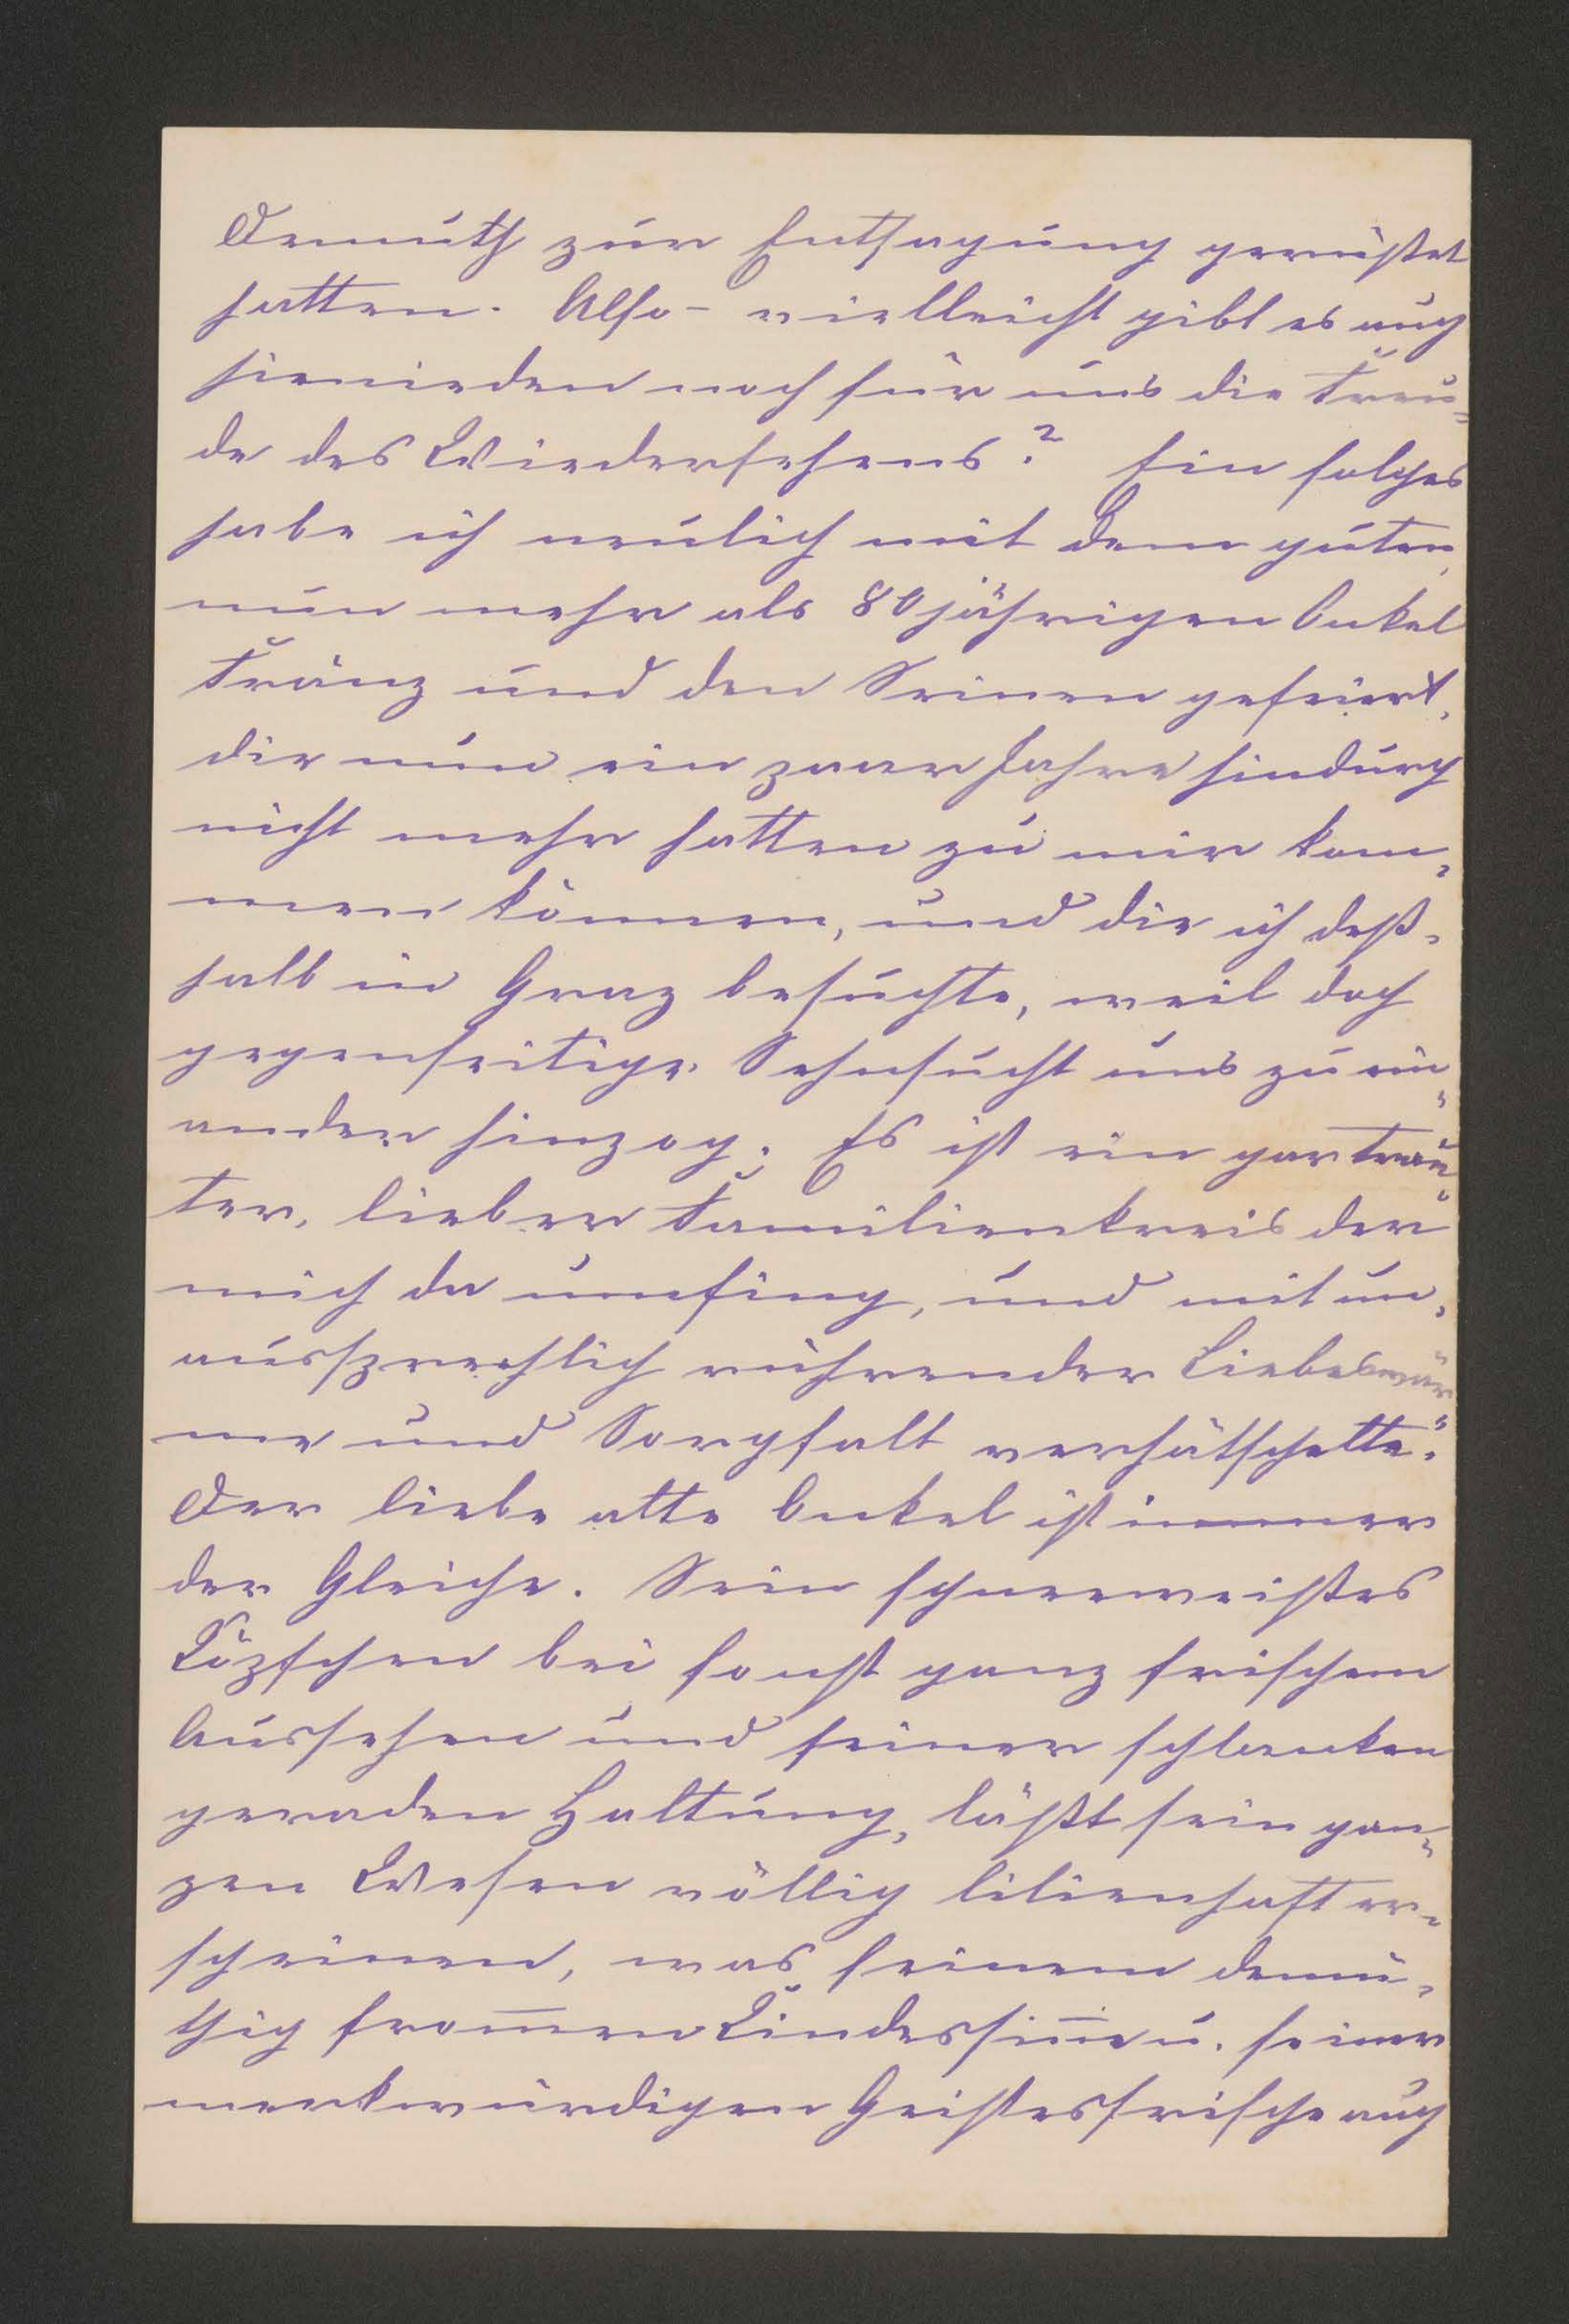 Demuth zur Entsagung gerüstet
hatten. Also – vielleicht gibt es auch
hienieden noch für uns die Freu=
de des Wiedersehens? Ein solches
habe ich neulich mit dem guten,
nun mehr als 80jährigen Onkel
Franz und den Seinen gefeiert,
die nun ein paar Jahre hindurch
nicht mehr hatten zu mir kom=
men können, und die ich deß=
halb in Graz besuchte, weil doch
gegenseitige Sehnsucht uns zu ein=
ander hinzog. Es ist ein gar trau=
ter, lieber Familienkreis der
mich da umfing, und mit un=
aussprechlich rührender Liebeswär=
me und Sorgfalt verhätschelte.
Der liebe alte Onkel ist immer
der Gleiche. Sein schneeweißes
Köpfchen bei sonst ganz frischem
Aussehen und seiner schlanken
geraden Haltung, läßt sein gan=
zen Wesen völlig lilienhaft er=
scheinen, was seinem demü=
thig from̅en Kindessin̅e u. seiner
merkwürdigen Geistesfrische auch